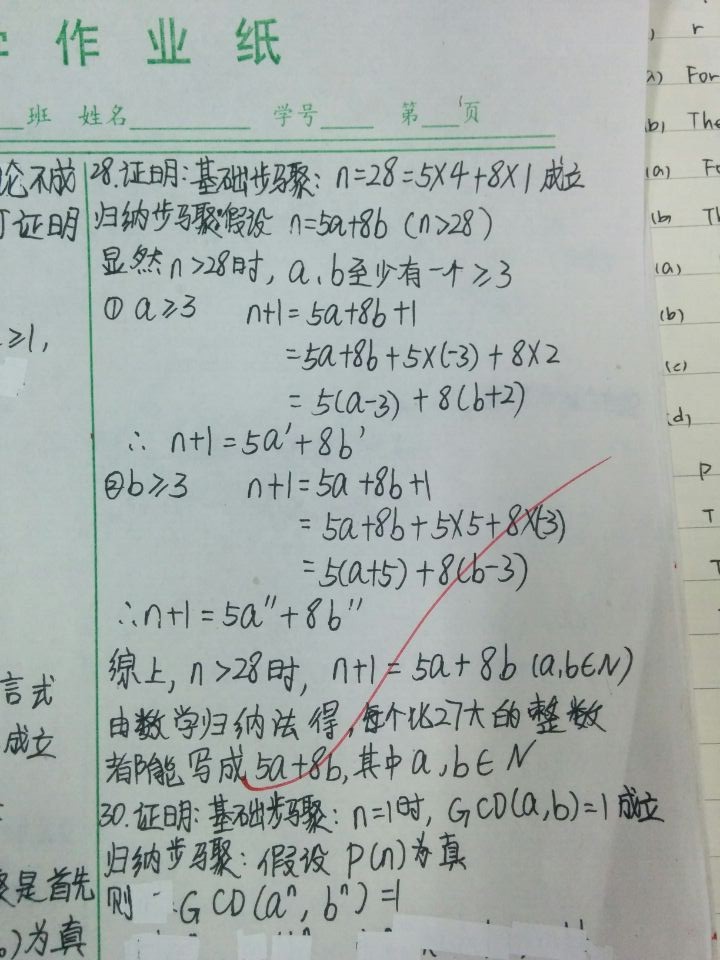 作业纸
班 姓名 学号 第 页
论不成
证明
≥1,
言式
成立
是首先
)为真
28.证明:基础步骤: n=28=5×4+8×1 成立
归纳步骤:假设 n=5a+8b (n>28)
显然 n>28时, a、b至少有一个≥3
① a≥3 n+1=5a+8b+1
=5a+8b+5×(-3)+8×2
=5(a-3)+8(b+2)
∴ n+1=5a'+8b'
②b≥3 n+1=5a+8b+1
=5a+8b+5×5+8×(-3)
=5(a+5)+8(b-3)
∴n+1=5a''+8b''
综上, n>28时, n+1=5a+8b (a,b∈N)
由数学归纳法得,每个比27大的整数
都能写成5a+8b,其中a,b∈N
30.证明:基础步骤: n=1时, GCD(a,b)=1成立
归纳步骤:假设 P(n)为真
则 GCD(aⁿ, bⁿ)=1
r
a) For
b) The
(a) Fo
(b Th
(a)
(b)
(c)
(d)
P
T
T